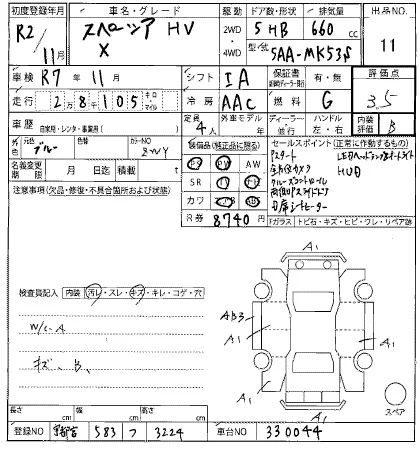 初度登録年月 車名・グレード 駆動 ドア数・形状 排気量 出品NO.
R2/11月 スペーシア HV X 2WD 4WD 5 HB 660 cc 11
型式 5AA-MK53S
車検 R7年11月 シフト IA 保証書 有・無 評価点
走行 28105 キロ・マイル 冷房 AAC 燃料 G 3.5
車歴 自家用・レンタ・事業用( ) 定員 4人 外車モデル 年 ディーラー 他行 ハンドル 左・右 内装評価 B
元色 ブルー 色替 カラーNO ZWY
名義変更期限 月 日迄 積載 t
装備品(純正品に限る)
PS PW AW
SR
カワ
R券 8740円
セールスポイント(正常に作動するもの)
Pスタート LEDヘッドランプオートライト
全方位カメラ HUD
クルーズコントロール
両側Pスライドドア
シートヒーター
注意事項(欠品・修復・不具合箇所および状態)
F ガラス トビ石・キズ・ヒビ・ワレ・リペア跡
検査員記入 内装 汚レ・スレ・キズ・キレ・コゲ・穴
W/C-A
キズ、B、
A1
AB3
A1
A1
A1
A1
スペア
長さ cm 幅 cm 高さ cm
登録NO 宇都宮 583 つ 3224 車台NO 330044